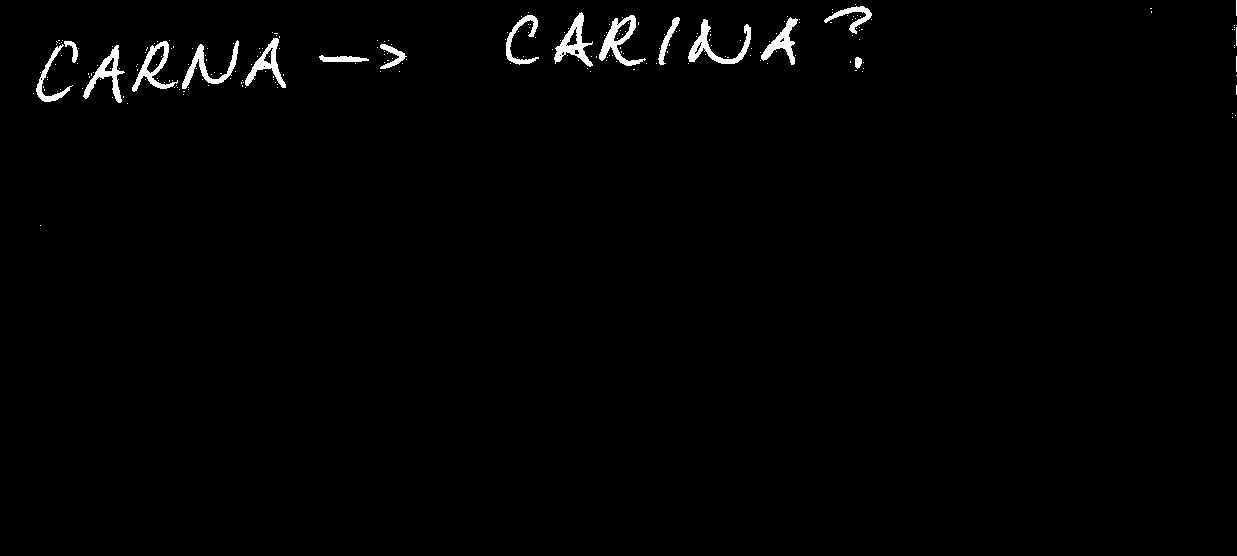 CARNA -> CARINA?